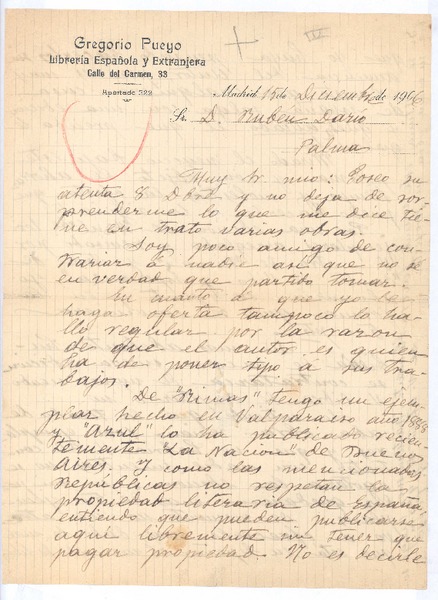 Gregorio Pueyo
Librería Española y Extranjera
Calle del Carmen, 33
Apartado 322
IV
Madrid 15 de Diciembre de 1906
Sr. D. Rubén Dario
Palma
Muy Sr mio: Poseo su
atenta 8 Dbre y no deja de sor-
prenderme lo que me dice tie-
ne en trato varias obras.
Soy poco amigo de con-
trariar á nadie asi que no sé
en verdad que partido tomar.
En cuanto á que yo le
haga oferta tampoco lo ha-
llo regular por la razon
de que el autor es quien
ha de poner tipo a sus tra-
bajos.
De "Rimas" tengo un ejem-
plar hecho en Valparaiso año 1888
y "Azul" lo ha publicado recien-
temente "La Nacion" de Buenos
Aires. Y como las mencionadas
Republicas no respetan la
propiedad literaria de España,
entiendo que pueden publicarse
aqui libremente sin tener que
pagar propiedad. No es decirle